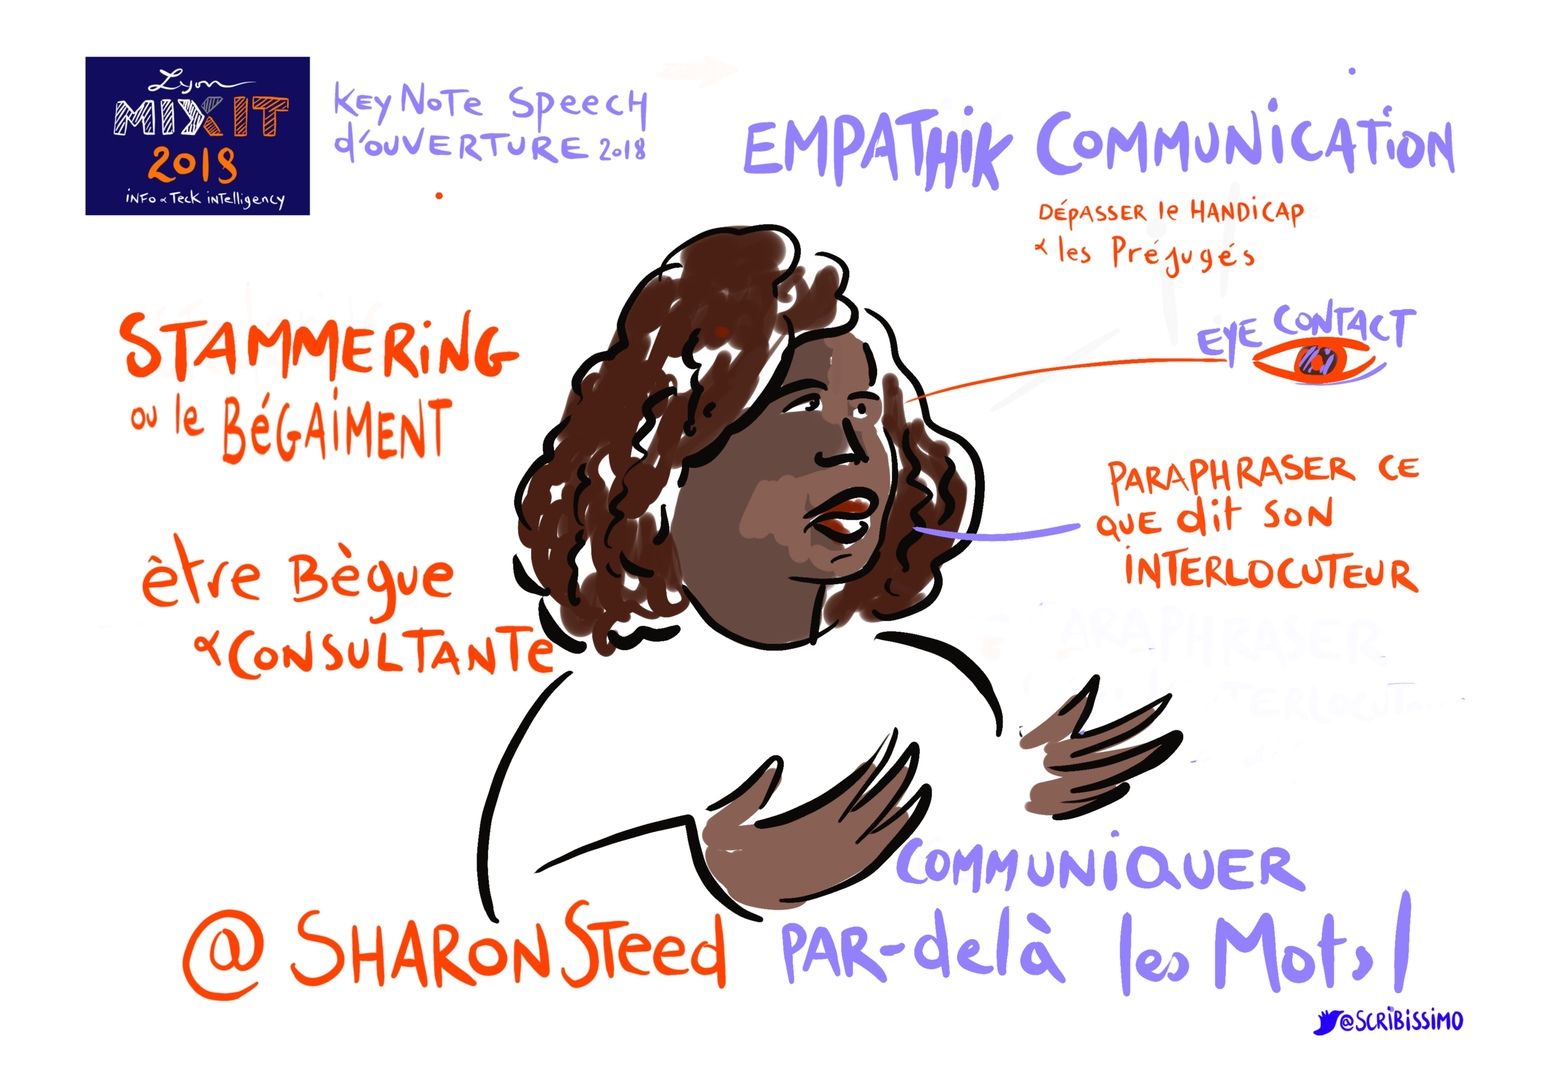 Lyon
MIXIT
2018
iNFO & Teck intelligency
KEYNOTE SpeecH
d'OUVERTURE 2018
EMPATHiK COMMUNiCATiON
DÉPASSER le HANDiCAP
& les Préjugés
EYE CONTACT
STAMMERiNG
ou le BéGAiMENT
PARAPHRASER CE
QUE dit SON
iNTERLOCUTEUR
être Bègue
& CONSULTANTE
COMMUNiQUER
PAR-delà les Mots!
@SHARONSTeed
@SCRiBiSSiMO